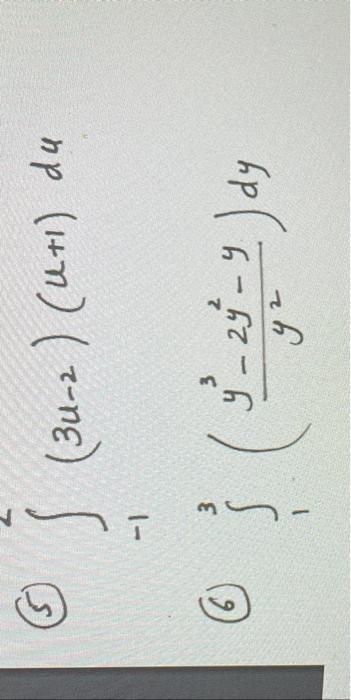 ⑤ ∫₋₁² (3u-2)(u+1) du
⑥ ∫₁³ ( (y³ - 2y² - y) / y² ) dy